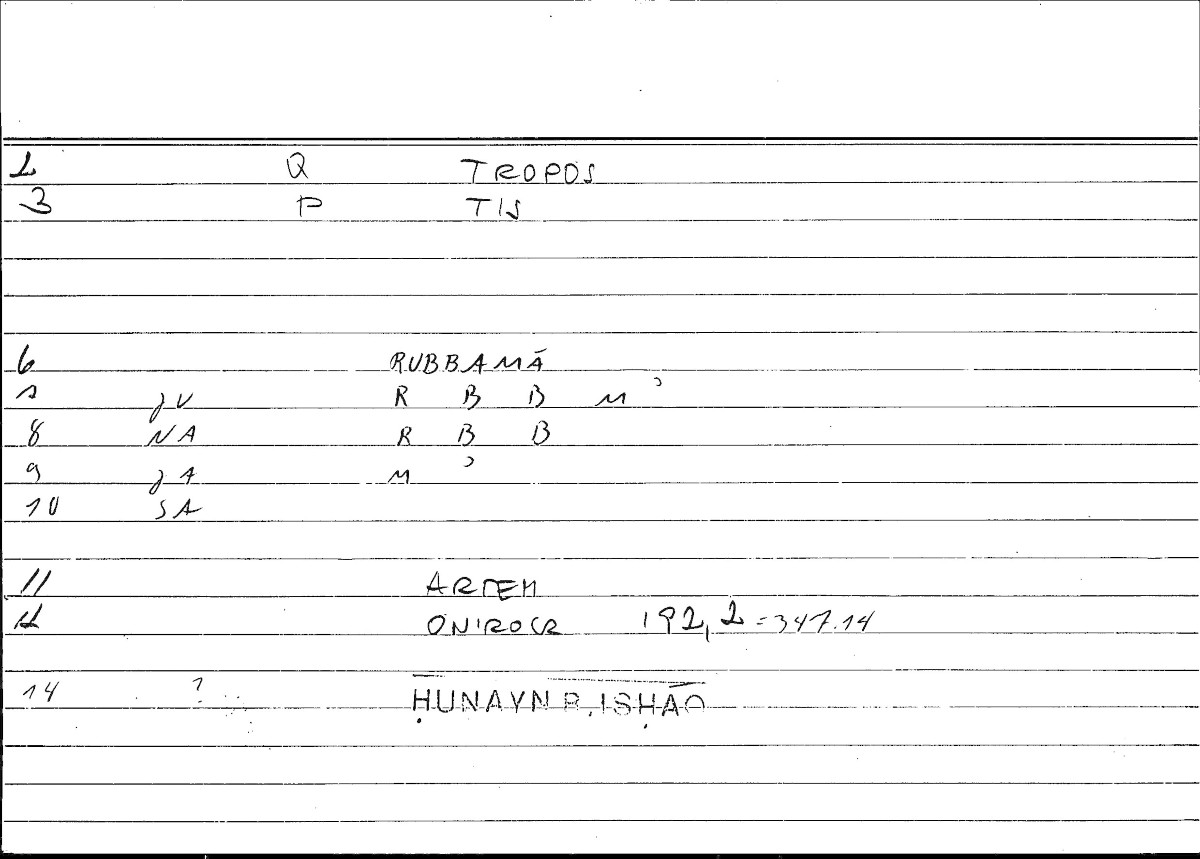 2 Q TROPOS
3 P TIS
6 RUBBAMĀ
7 JU R B B M ʾ
8 NA R B B
9 JA M ʾ
10 SA
11 ARTEM
12 ONIROCR 192,2=347.14
14 ? ḤUNAYN B.ISḤĀQ